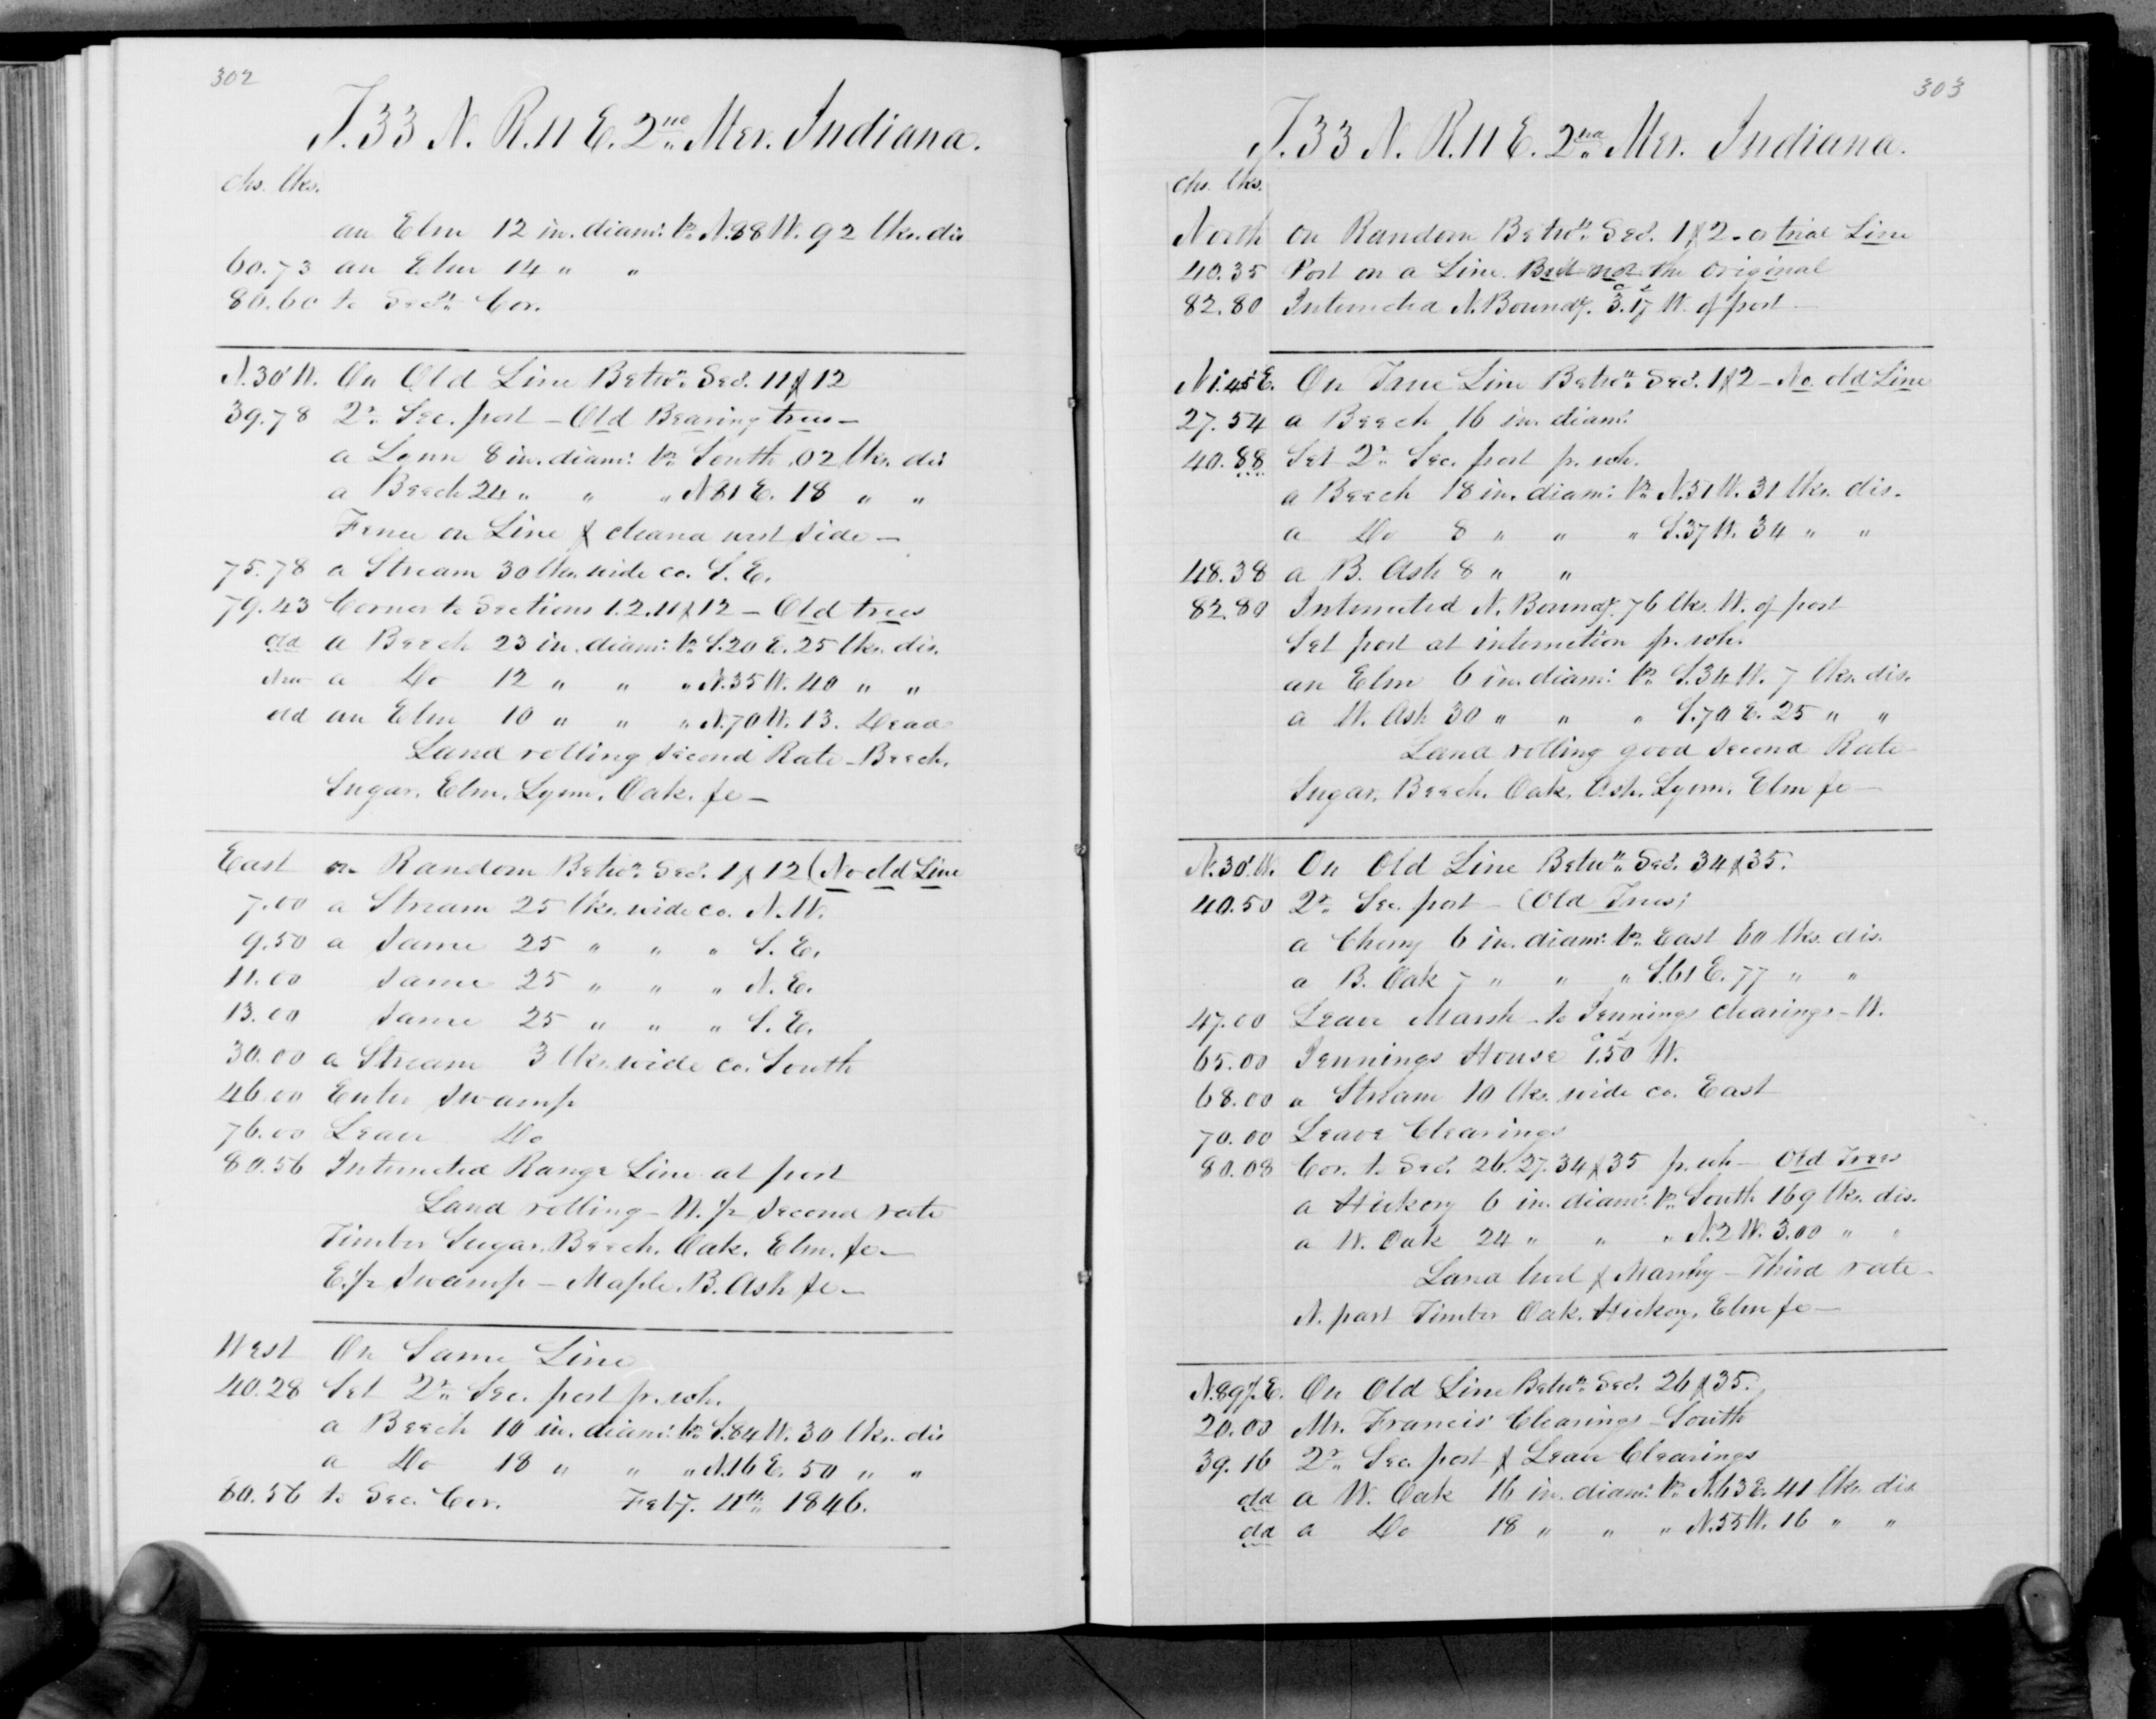 302
T. 33 N. R. 11 E. 2nd Mer. Indiana.
chs. lks.
an Elm 12 in. diamr. br. N.88 W. 92 lks. dis
60.73 an Elm 14 " "
80.60 to Secn. Cor.
N.30' W. On Old Line Betwn. Secs. 11 & 12
39.78 2r. Sec. post – Old Bearing trees –
a Lynn 8 in. diamr. br. South .02 lks. dis
a Beech 24 " " " N.81 E. 18 " "
Fence on Line & cleared west side –
75.78 a Stream 30 lks. wide co. S. E.
79.43 Corner to Sections 1. 2. 11 & 12 – Old trees
old a Beech 23 in. diamr. br. S.20 E. 25 lks. dis.
New a Do 12 " " " N.35 W. 40 " "
old an Elm 10 " " " N.70 W. 13. Dead
Land rolling Second Rate – Beech,
Sugar. Elm. Lynn. Oak. &c –
East on Random Betwn. Secs. 1 & 12 (No old Line
7.00 a Stream 25 lks. wide co. N. W.
9.50 a Same 25 " " " S. E.
11.00 Same 25 " " " N. E.
13.00 Same 25 " " " S. E.
30.00 a Stream 3 lks. wide co. South
46.00 Enter Swamp
76.00 Leave Do
80.56 Intersected Range Line at post
Land rolling – W. ½ Second rate
Timber Sugar. Beech. Oak. Elm. &c –
E. ½ Swamp – Maple. B. Ash &c –
West On Same Line
40.28 Set 2r. Sec. post pr. wh.
a Beech 10 in. diamr. br. S.84 W. 30 lks. dis
a Do 18 " " " N.16 E. 50 " "
80.56 to Sec. Cor. Feby. 4th 1846.
303
T. 33 N. R. 11 E. 2nd Mer. Indiana.
chs. lks.
North on Random Betwn. Secs. 1 & 2 – a trial Line
40.35 Post on a Line But not the Original
82.80 Intersected N. Boundy. 3.17 W. of post –
N 1°.45' E. On True Line Betwn. Secs. 1 & 2 – No old Line
27.54 a Beech 16 in. diamr.
40.88 Set 2r. Sec. post pr. wh.
a Beech 18 in. diamr. br. N.51 W. 31 lks. dis.
a Do 8 " " " S.37 W. 34 " "
48.38 a B. Ash 8 " "
82.80 Intersected N. Boundy. 76 lks. W. of post
Set post at intersection pr. wh.
an Elm 6 in. diamr. br. S.34 W. 7 lks. dis.
a W. Ash 30 " " " S.70 E. 25 " "
Land rolling good Second Rate
Sugar. Beech. Oak. Ash. Lynn. Elm &c –
N. 30' W. On Old Line Betwn. Secs. 34 & 35.
40.50 2r. Sec. post – (Old Trees)
a Cherry 6 in. diamr. br. East 60 lks. dis.
a B. Oak 7 " " " S.61 E. 77 " "
47.00 Leave Marsh – to Jennings clearings – W.
65.00 Jennings House 1.50 W.
68.00 a Stream 10 lks. wide co. East
70.00 Leave Clearings
80.08 Cor. to Secs. 26. 27. 34 & 35 pr. wh – Old Trees
a Hickory 6 in. diamr. br. South 169 lks. dis.
a W. Oak 24 " " " N.2 W. 3.00 " "
Land level & Marshy – Third rate –
N. part Timber Oak. Hickory. Elm &c –
N.89½ E. On Old Line Betwn. Secs. 26 & 35.
20.00 Mr. Francis' Clearings – South
39.16 2r. Sec. post & Leave Clearings
old a W. Oak 16 in. diamr. br. N.63 E. 41 lks. dis
old a Do 18 " " " N.55 W. 16 " "